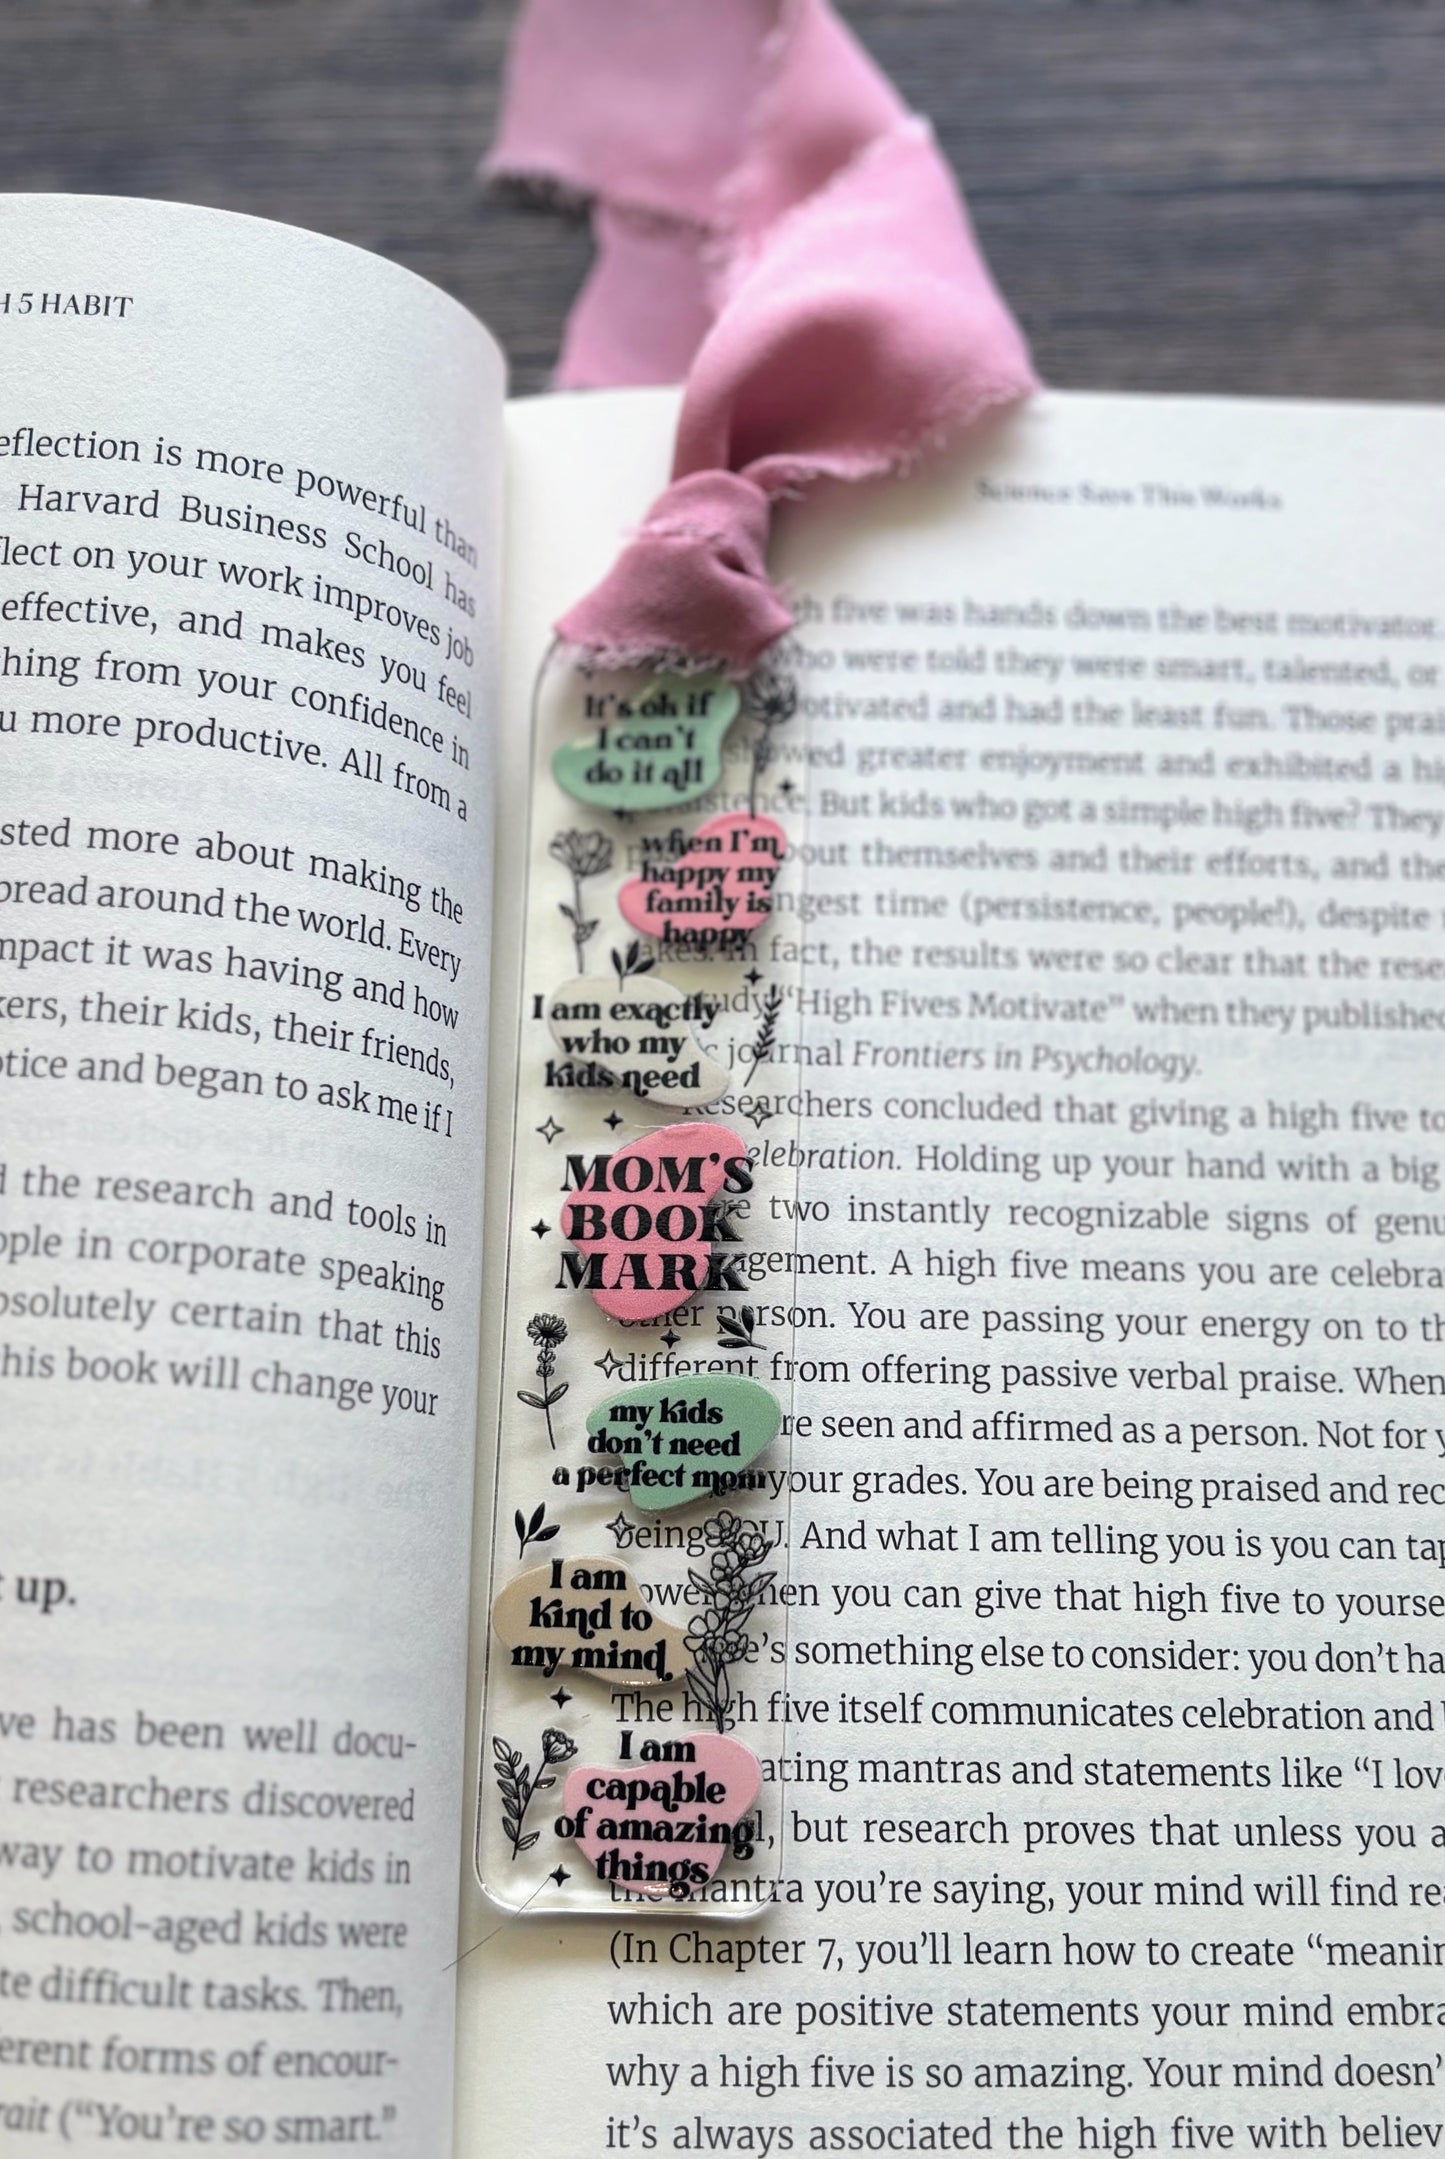 H 5 HABIT
eflection is more powerful than
Harvard Business School has
flect on your work improves job
effective, and makes you feel
hing from your confidence in
u more productive. All from a
sted more about making the
pread around the world. Every
mpact it was having and how
kers, their kids, their friends,
otice and began to ask me if I
d the research and tools in
ople in corporate speaking
bsolutely certain that this
his book will change your
t up.
ve has been well docu-
researchers discovered
way to motivate kids in
school-aged kids were
te difficult tasks. Then,
erent forms of encour-
rait ("You're so smart."
It's oh if
I can't
do it all
when I'm
happy my
family is
happy
I am exactly
who my
kids need
MOM'S
BOOK
MARK
my kids
don't need
a perfect mom
I am
kind to
my mind
I am
capable
of amazing
things
Science Says This Works
h five was hands down the best motivator.
who were told they were smart, talented, or
otivated and had the least fun. Those prai
showed greater enjoyment and exhibited a hi
istence. But kids who got a simple high five? They
out themselves and their efforts, and the
ngest time (persistence, people!), despite
takes. In fact, the results were so clear that the rese
udy "High Fives Motivate" when they published
c journal Frontiers in Psychology.
Researchers concluded that giving a high five to
elebration. Holding up your hand with a big
re two instantly recognizable signs of genu
agement. A high five means you are celebra
other person. You are passing your energy on to th
different from offering passive verbal praise. When
re seen and affirmed as a person. Not for y
your grades. You are being praised and rec
being YOU. And what I am telling you is you can tap
ower when you can give that high five to yourse
e's something else to consider: you don't ha
The high five itself communicates celebration and
ating mantras and statements like "I lov
l, but research proves that unless you a
the mantra you're saying, your mind will find re
(In Chapter 7, you'll learn how to create "meanin
which are positive statements your mind embra
why a high five is so amazing. Your mind doesn'
it's always associated the high five with believ